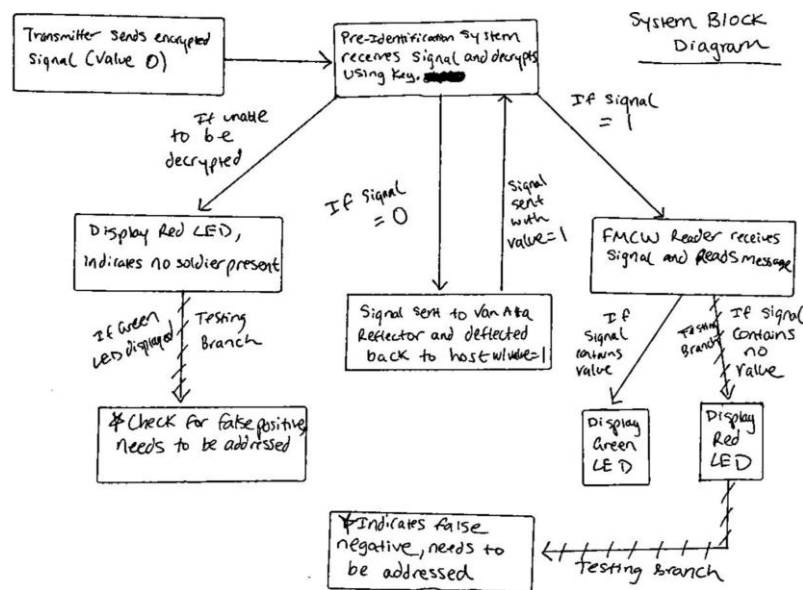 System Block
Diagram
Transmitter sends encrypted
Signal (Value 0)
Pre-Identification System
receives Signal and decrypts
Using Key.
If unable
to be
decrypted
If Signal
= 0
Signal
sent
with
value=1
If Signal
= 1
Display Red LED,
indicates no soldier present
Signal sent to Van Atta
Reflector and deflected
back to host w/value=1
FMCW Reader receives
Signal and Reads message
If Green
LED displayed
Testing
Branch
If
Signal
contains
value
Testing
Branch
If Signal
Contains
no
Value
* Check for false positive,
needs to be addressed
Display
Green
LED
Display
Red
LED
* Indicates false
negative, needs to
be addressed
Testing Branch